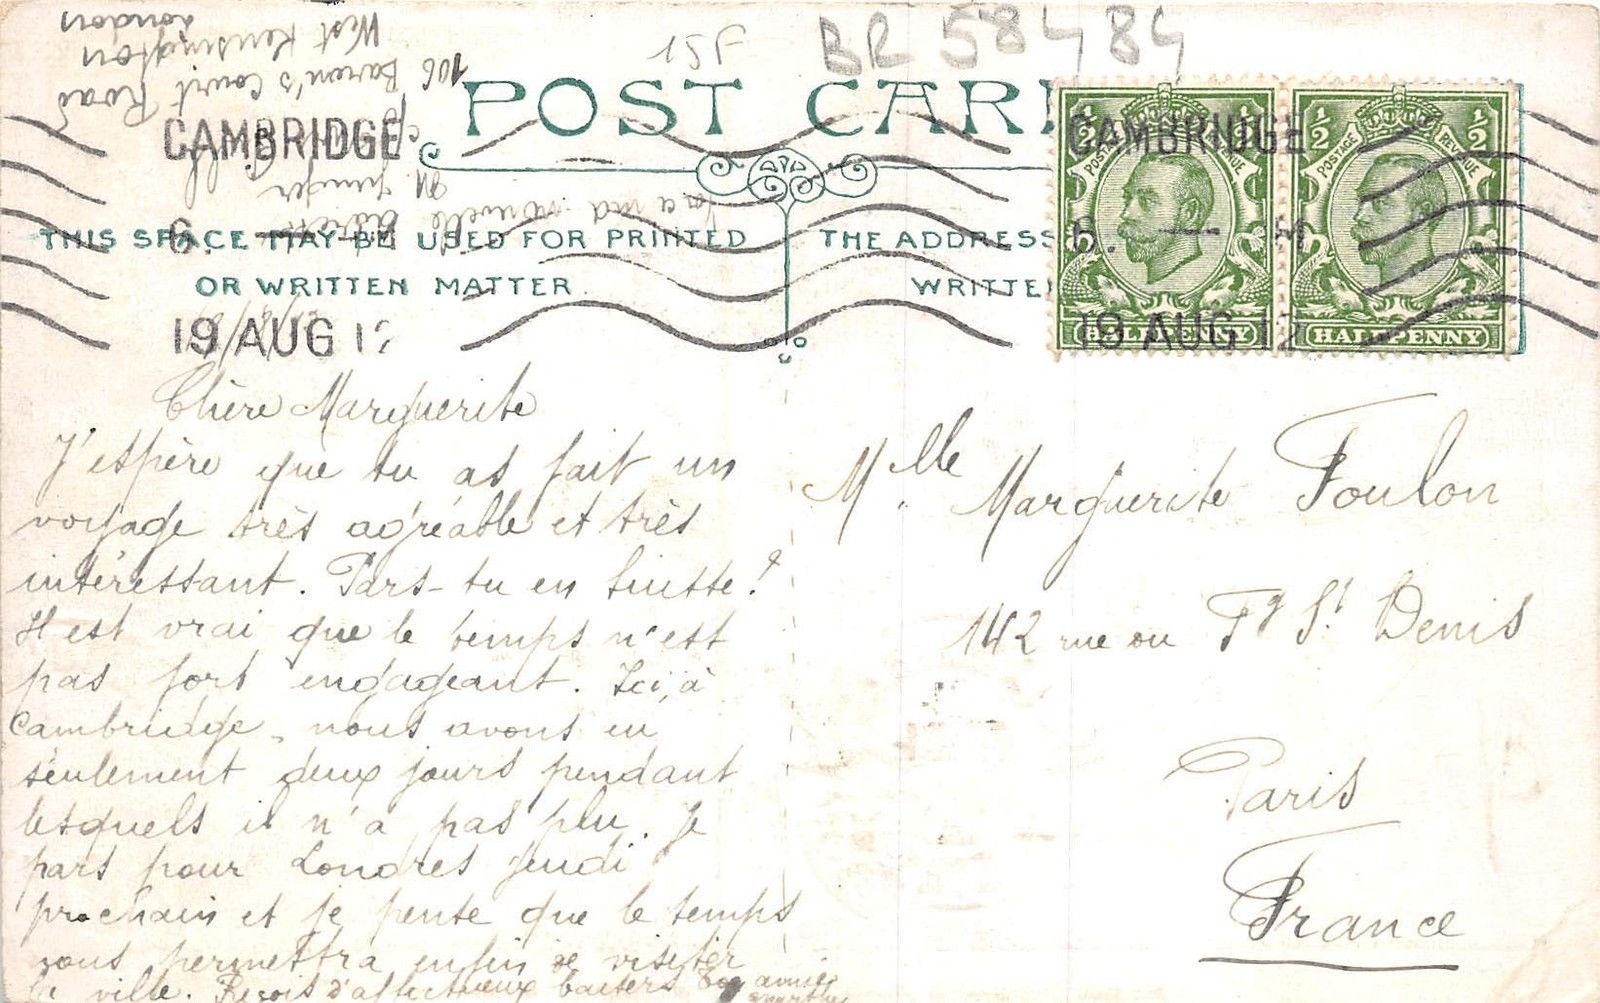 BR 58484
15F
POST CAR
THIS SPACE MAY BE USED FOR PRINTED
OR WRITTEN MATTER
THE ADDRESS
WRITTE
CAMBRIDGE
6.
19 AUG 12
CAMBRIDGE
6. — M
19 AUG 12
POSTAGE REVENUE
1/2
HALFPENNY
POSTAGE REVENUE
1/2 1/2
HALFPENNY
Voici ma nouvelle
M. Junger
106 Baron's Court Road
West Kensington
London
Chère Marguerite
J'espère que tu as fait un
voyage très agréable et très
intéressant. Pars-tu en Suisse?
Il est vrai que le temps n'est
pas fort engageant. Ici, à
Cambridge, nous avons eu
seulement deux jours pendant
lesquels il n'a pas plu. Je
pars pour Londres jeudi
prochain et je pense que le temps
nous permettra enfin de visiter
la ville. Reçois d'affectueux baisers Ton amie
Mlle Marguerite Foulon
142 rue du Fg St Denis
Paris
France